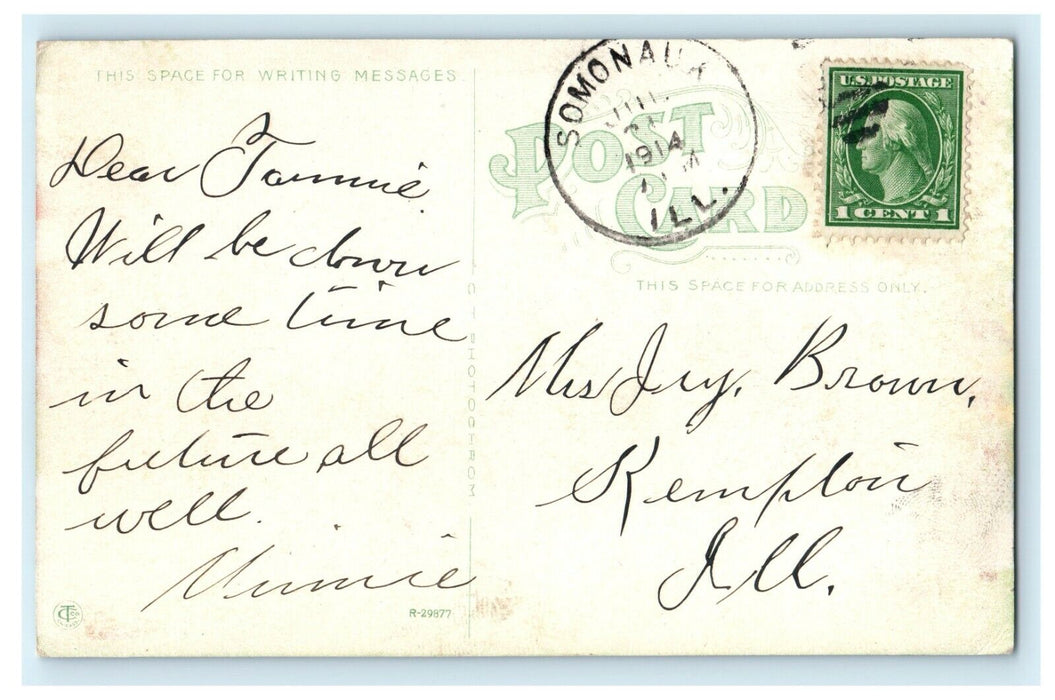 THIS SPACE FOR WRITING MESSAGES
Dear Fannie.
Will be down
some time
in the
future all
well.
Minnie
R-29877
C T PHOTOCHROM
SOMONAUK
1914
ILL.
POST
CARD
U.S. POSTAGE
1 CENT 1
THIS SPACE FOR ADDRESS ONLY.
Mrs Jay. Brown,
Kempton
Ill.